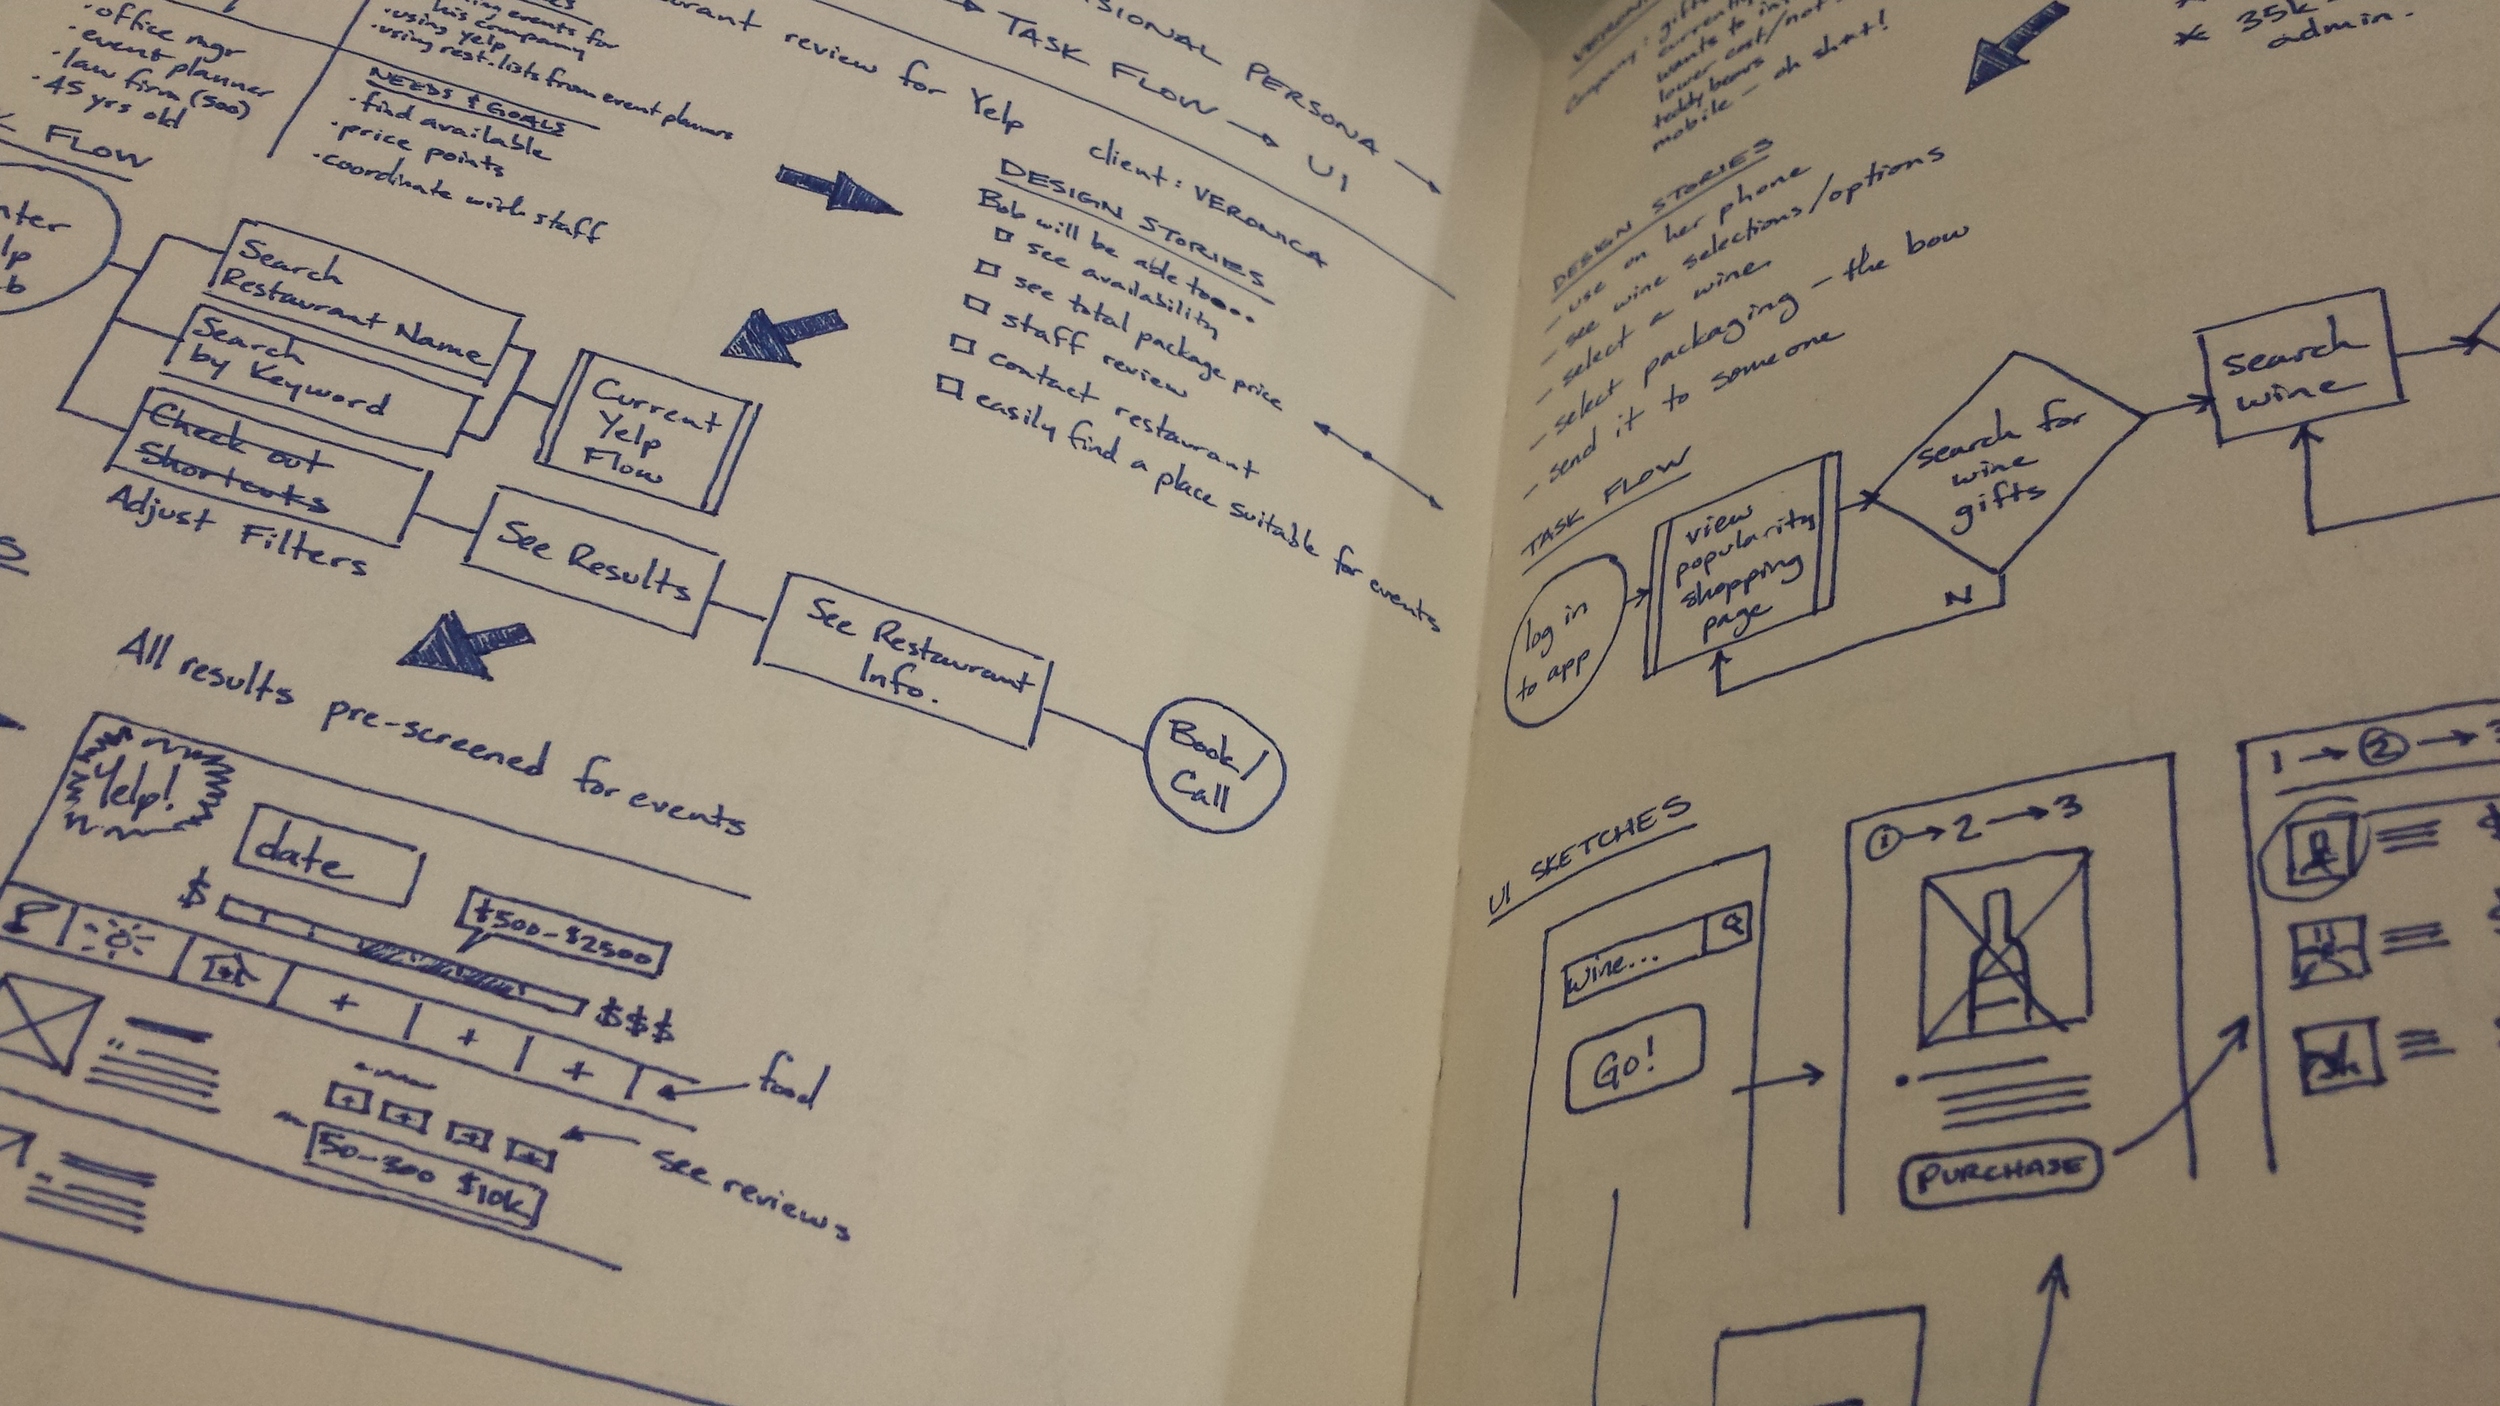 · office mgr
· event planner
· law firm (500)
· 45 yrs old
events for
his company
· using yelp
· using rest. lists from event planners
NEEDS & GOALS
· find available
· price points
· coordinate with staff
review for Yelp
PERSONA →
→ TASK FLOW → UI
client: VERONICA
DESIGN STORIES
Bob will be able to...
□ see availability
□ see total package price
□ staff review
□ contact restaurant
□ easily find a place suitable for events
FLOW
Search
Restaurant Name
Search
by Keyword
Check out
Shortcuts
Adjust Filters
Current
Yelp
Flow
See Results
See Restaurant
Info.
Book/
Call
All results pre-screened for events
Yelp!
date
$500-$2500
$
$$$
+ + +
food
see reviews
50-300 $10k
wants to
lower cost/not
teddy bears
mobile - oh shit!
* 35k
admin.
DESIGN STORIES
- use on her phone
- see wine selections/options
- select a wine
- select packaging - the bow
- send it to someone
TASK FLOW
log in
to app
view
popularity
shopping
page
search for
wine
gifts
N
search
wine
UI SKETCHES
wine...
Go!
1 → 2 → 3
PURCHASE
1 → 2 → 3